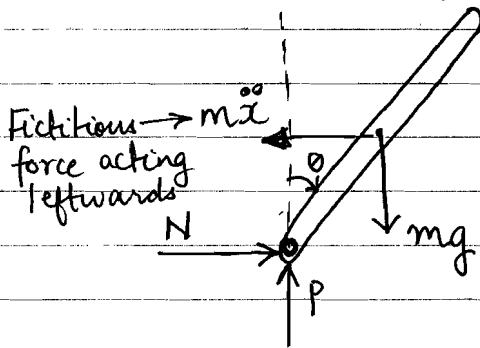 Fictitious → mẍ
force acting
leftwards
θ
N
mg
P